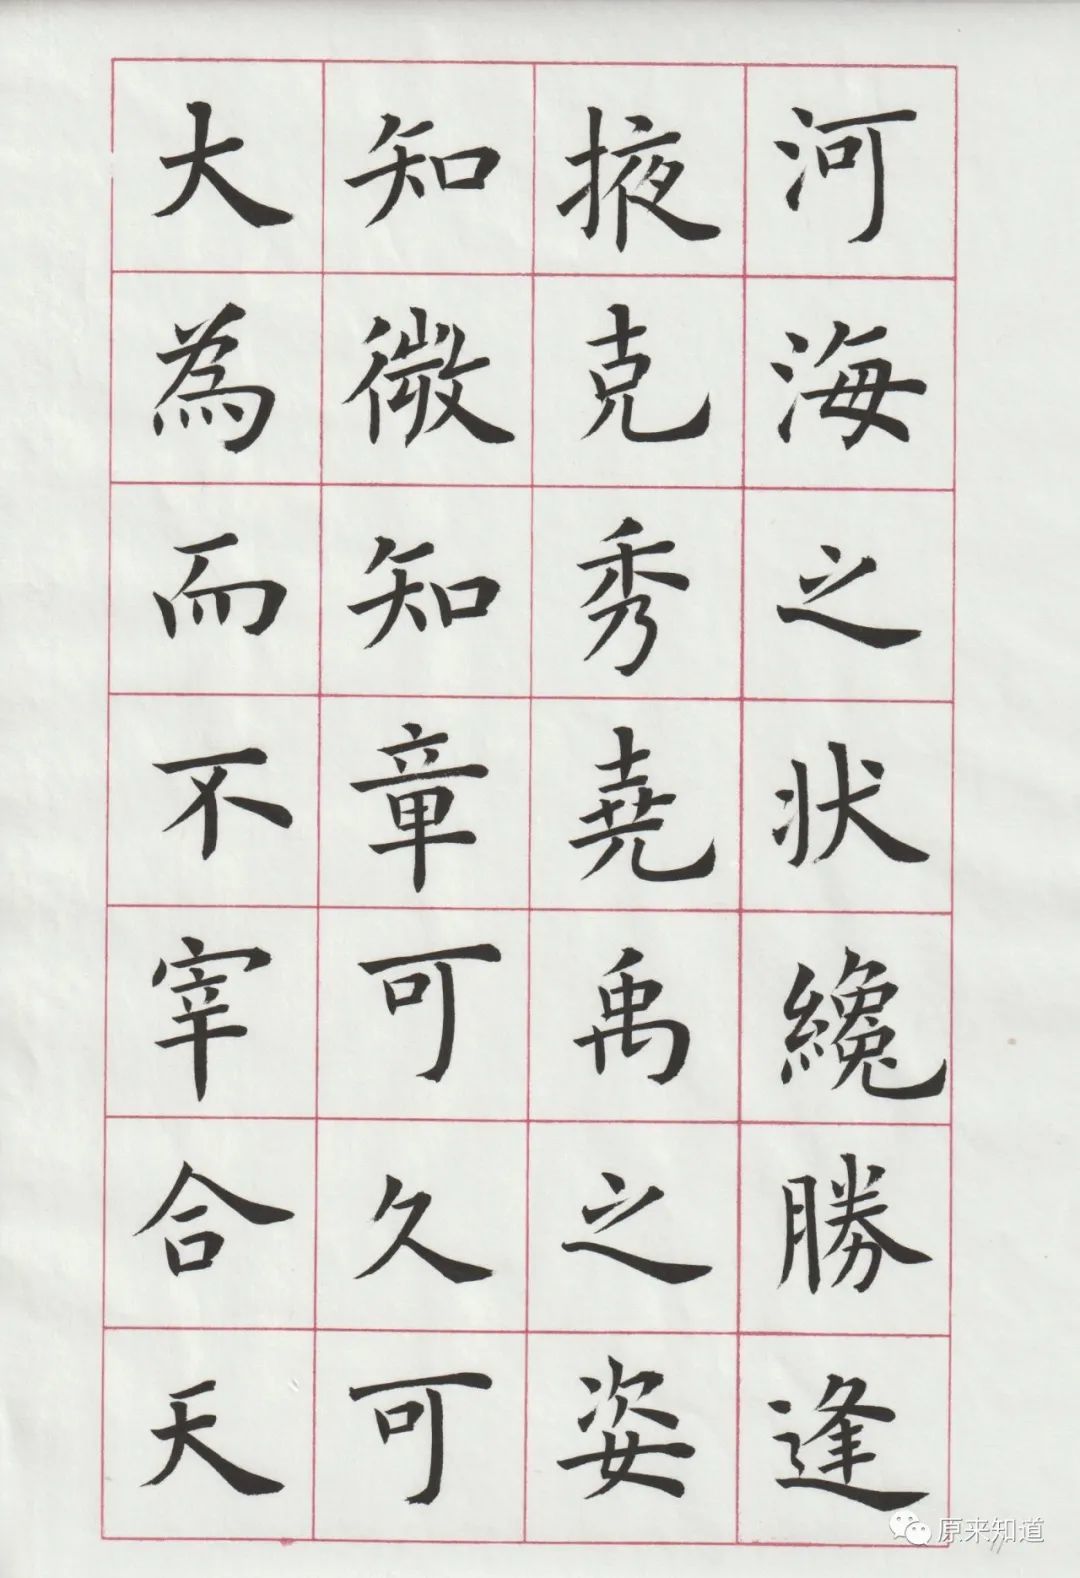 河海之状纔勝逢
掖克秀堯禹之姿
知微知章可久可
大為而不宰合天
原来知道